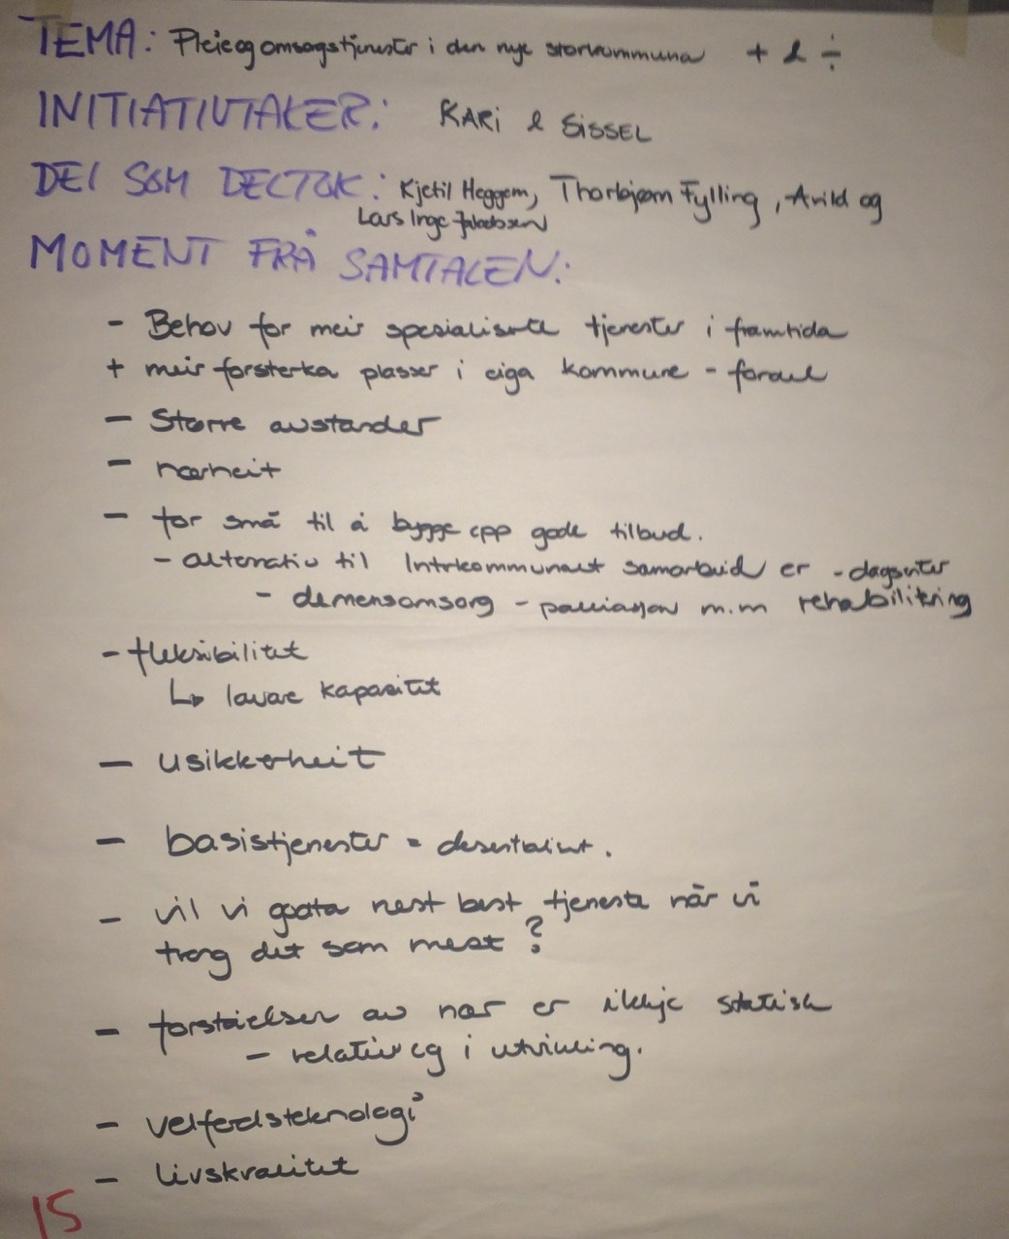 TEMA: Pleie og omsogstjenester i den nye storkommuna + & ÷
INITIATIVTAKER: KARI & SISSEL
DEI SOM DELTOK: Kjetil Heggem, Thorbjørn Fylling, Arild og
Lars Inge Jakobsen
MOMENT FRÅ SAMTALEN:
- Behov for meir spesialiserte tjenester i framtida
+ meir forsterka plasser i eiga kommune - fordel
- Større avstander
- nærheit
- for små til å bygge opp gode tilbud.
- alternativ til Interkommunalt samarbeid er - dagsenter
- demensomsorg - palliasjon m.m rehabilitering
- fleksibilitet
↳ lavare kapasitet
- usikkerheit
- basistjenester = desentralisert.
- vil vi godta nest best tjeneste når vi
treng det som mest?
- forståelsen av nær er ikkje statisk
- relativ og i utvikling.
- velferdsteknologi
- livskvalitet
15